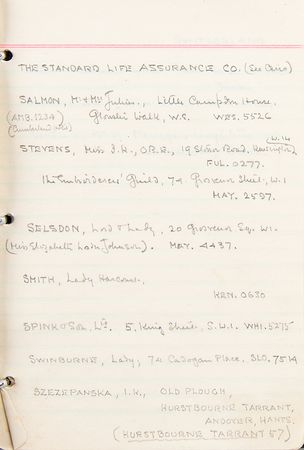 THE STANDARD LIFE ASSURANCE CO. (See Cairo)
SALMON, Mr & Mrs Julian., Little Campden House,
(AMB. 1234) Gloucester Walk, W.8. WES. 5526
(Cumberland Hotel)
W.14
STEVENS, Miss J.R., O.B.E., 19 Road, Kensington,
FUL. 0277.
The Embroiderers' Guild, 74 Grosvenor Street, W.1
MAY. 2597.
SELSDON, Lord & Lady, 20 Grosvenor Sq. W.1.
(Miss Elizabeth Johnson). MAY. 4437.
SMITH, Lady Harcourt.
KEN. 0630
SPINK & Son, Ltd. 5, King Street, S.W.1. WHI. 5275
SWINBURNE, Lady, 74 Cadogan Place, SLO. 7514
SZEZEPANSKA, I.K., OLD PLOUGH,
HURSTBOURNE TARRANT,
ANDOVER, HANTS.
(HURSTBOURNE TARRANT 57)